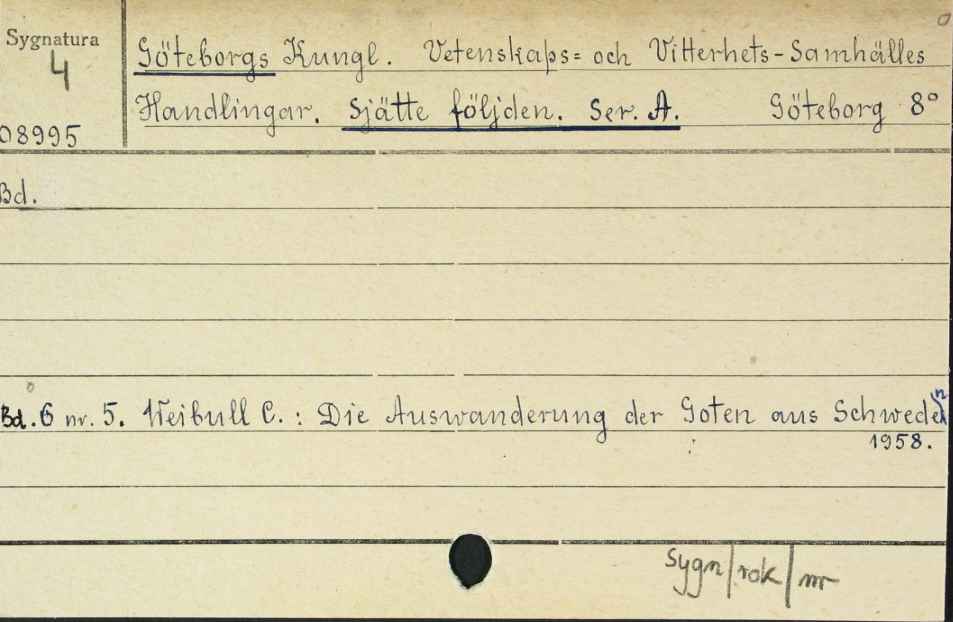 Sygnatura
4
08995
Göteborgs Kungl. Vetenskaps= och Vitterhets-Samhälles
Handlingar. Sjätte följden. Ser. A. Göteborg 8°
Bd.
Bd. 6 nr. 5. Weibull C. : Die Auswanderung der Goten aus Schweden
1958.
sygn/rok/nr